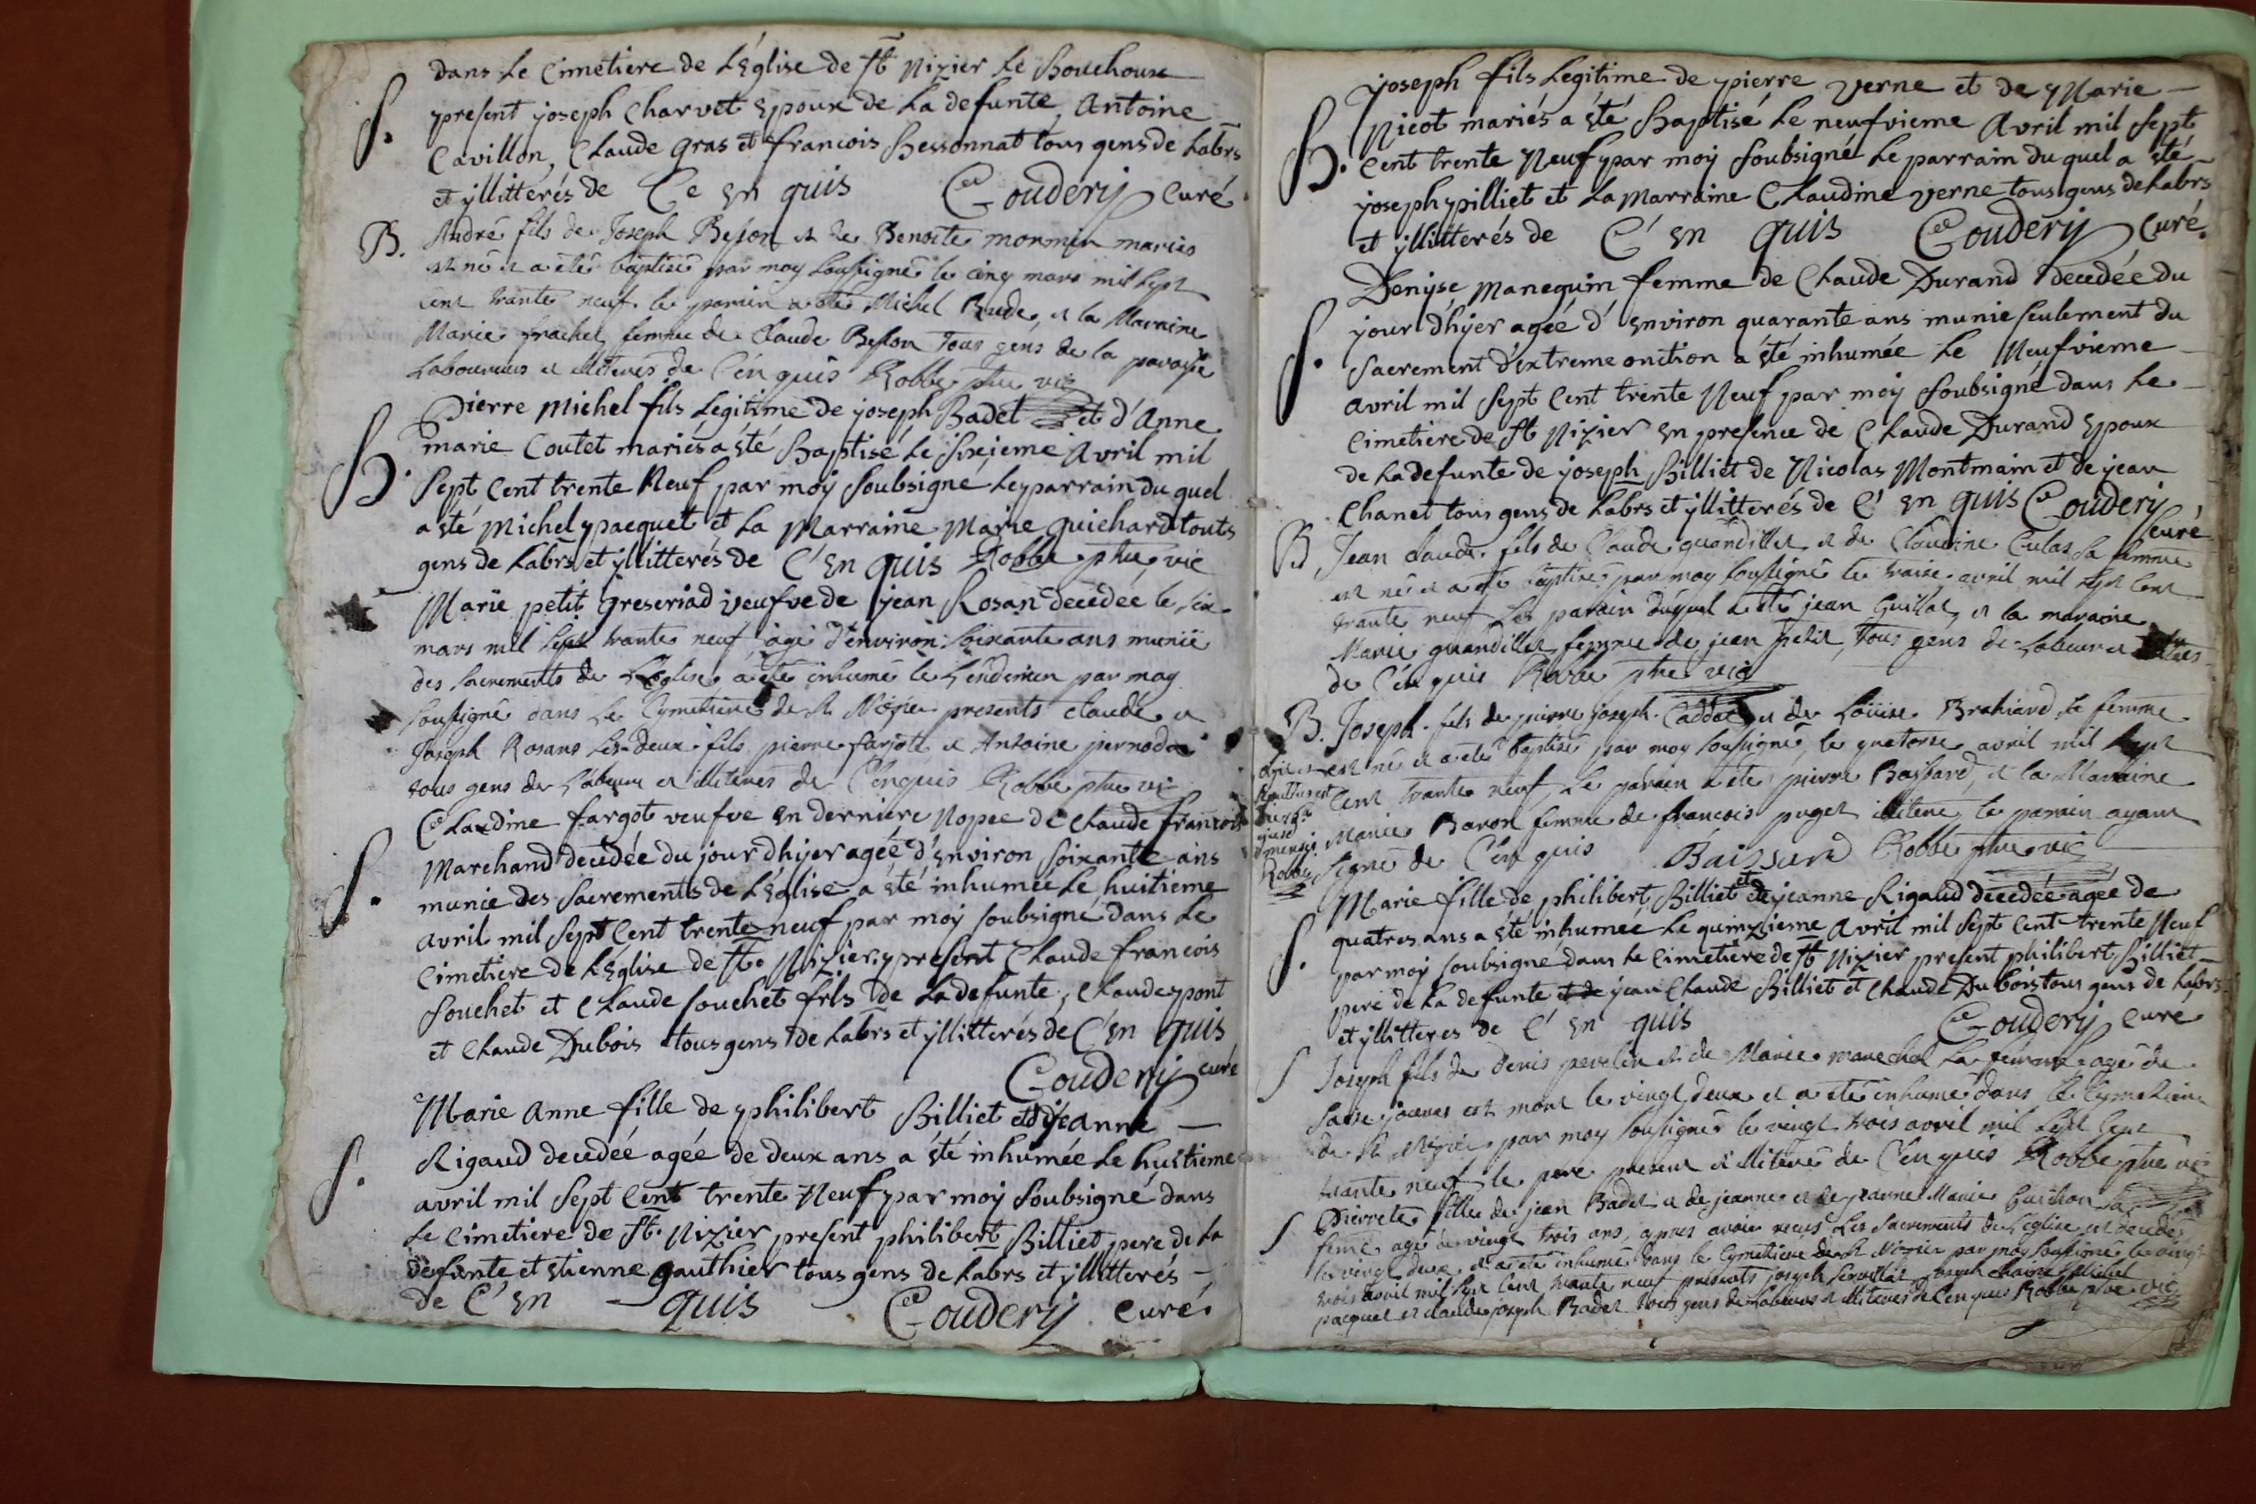 dans Le Cimetiere de LEglise de St Nizier Le Bouchoux
S. present joseph Charvet Epoux de La defunte, Antoine
Cavillon, Claude Gras et francois Bessonnat tous gens de Labrs
et yllitterés de Ce En quis Couderij Curé.
B. André fils de Joseph Beson et de Benoite monmin mariés
est né et a été baptisé par moy soussigné le cinq mars mil sept
cent trante neuf le parain a été Michel Rude, et la Maraine
Marie frachet femme de Claude Beson Tous gens de la paroisse
Laboureurs et illiterés de C'en quis Robbe ptre vic
Pierre Michel fils Legitime de joseph Badet et d'Anne
B. marie Coutet mariés a été Baptisé Le Sixieme Avril mil
Sept Cent trente Neuf par moy Soubsigné Le parrain du quel
a été Michel pacquet et La Marraine Marie Guichard touts
gens de Labrs et yllitterés de C'En quis Robbe ptre vic
Marie petit Greseriad veufve de jean Rosan decedée le six
mars mil sept trante neuf agé d'environ soixante ans munie
des sacrements de L'Eglise a été inhumé le Lendemain par moy
soussigné dans Le Cymetiere de St Nizier presents claude et
Joseph Rosans ses deux fils pierre farjott et Antoine pernodat
tous gens de Labeur et illiterés de C'enquis Robbe ptre vic
Claudine fargot veufve En derniere Nopce de Claude francois
S. Marchand decedée du jour dhyer agée d'Environ Soixante ans
munie des Sacrements de LEglise a été inhumée Le huitieme
avril mil Sept Cent trente neuf par moy soubsigné dans Le
Cimetiere de LEglise de St Nizier present Claude francois
Souchet et Claude Souchet fils de La defunte, Claude pont
et Claude Dubois tous gens de Labrs et yllitterés de C'En quis
Couderij curé
Marie Anne fille de philibert Billiet et djeanne
S. Rigaud decedée agée de deux ans a été inhumée Le huitieme
avril mil Sept Cent trente Neuf par moy Soubsigné dans
Le Cimetiere de St Nizier present philibert Billiet pere de La
defunte et Etienne Gauthier tous gens de Labrs et yllitterés
de C'En quis Couderij Curé.
joseph fils Legitime de pierre Verne et de Marie
B. Nicot mariés a été Baptisé Le neufvieme Avril mil Sept
Cent trente Neuf par moy Soubsigné Le parrain du quel a été
joseph pilliet et La Marraine Claudine verne tous gens de Labrs
et yllitterés de C'En quis Couderij Curé.
Denyse Manequin femme de Claude Durand decedée du
S. jour d'hyer agée d'Environ quarante ans munie seulement du
Sacrement d'extreme onction a été inhumée Le Neufvieme
avril mil Sept Cent trente Neuf par moy Soubsigné dans Le
Cimetiere de St Nizier En presence de Claude Durand Epoux
de La defunte de joseph Billiet de Nicolas Montmain et de jean
Chanet tous gens de Labrs et yllitterés de C'En quis Couderij
curé
B Jean claude fils de Claude quandillet et de Claudine Culas sa femme
est né et a été baptisé par moy soussigné le traise avril mil sept cent
trante neuf Le parain duquel a été jean Guillot, et la maraine
Marie quandillet femme de jean petit, Tous gens de Labeur et
de C'en quis Robbe ptre vic
B. Joseph fils de pierre joseph Caddot et de Loüise Brahiand sa femme
est né et a été baptisé par moy soussigné le quatorse avril mil sept
cent trante neuf Le parain a été pierre Baissard, et la Maraine
Marie Baron femme de francois puget illiteré le parain ayant
Robbe
signé de C'en quis Baissard Robbe ptre vic
Marie fille de philibert Billiet et de jeanne Rigaud decedée agée de
S. quatres ans a été inhumée Le quinzieme Avril mil Sept Cent trente Neuf
par moy Soubsigné dans Le Cimetiere de St Nizier present philibert Billiet
pere de La defunte et de jean Claude Billiet et Claude Dubois tous gens de Labrs
et yllitteres de C'En quis Couderij Curé
S Joseph fils de denis pevelin et de Marie marechal sa femme agé de
saise jours est mort le vingt deux et a été inhumé dans Le Cymetiere
de St Nizié par moy soussigné le vingt trois avril mil sept cent
trante neuf le pere present et illiteré de C'en quis Robbe ptre vic
S Pierrete fille de jean Badet et de jeanne et de jeanne Marie Guichon sa
feme agé de vingt trois ans, apres avoir receu Les sacrements de l'eglise est decedé
le vingt deux et a été inhumé dans le Cymetiere de St Nizier par moy soussigné le vingt
trois avril mil sept cent trante neuf presents joseph Servillat joseph chaine Michel
pacquet et claude joseph Badet tous gens de Labeur et illiterés de C'en quis Robbe ptre vic